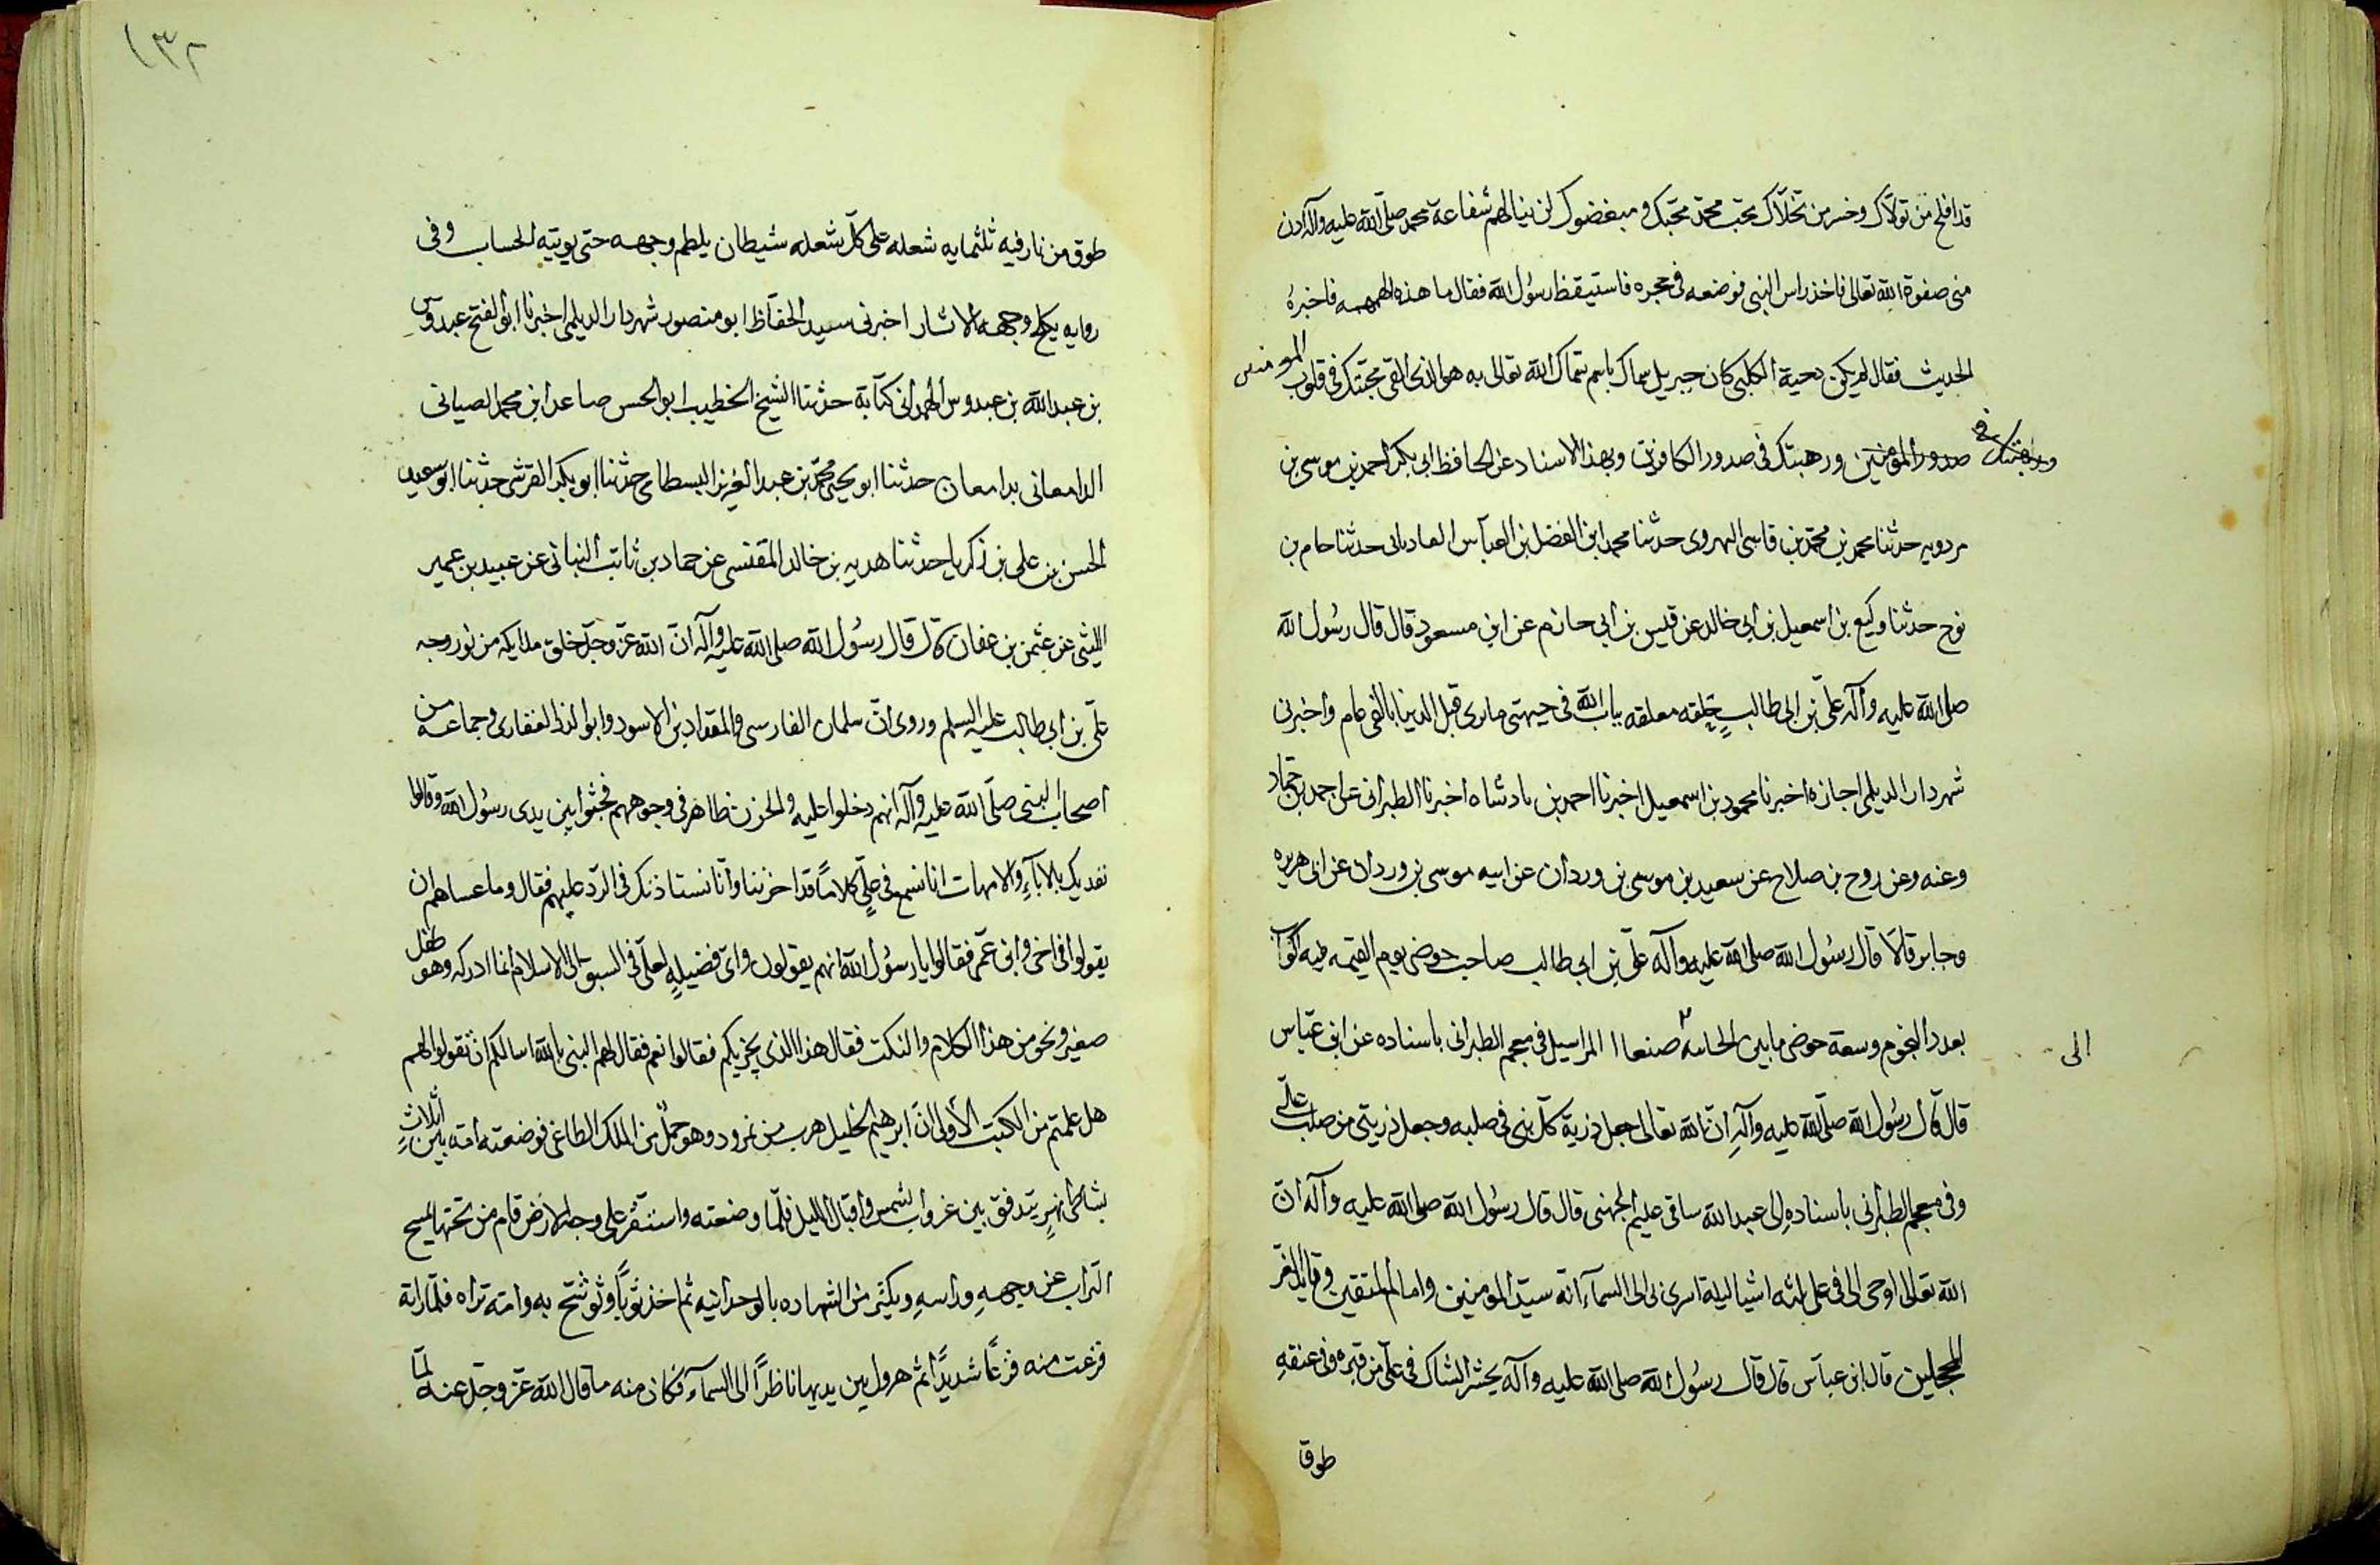 قد افلح من تولاك وخسر من تخلاك بحب محمد محبك ومبغضوك لن ينالهم شفاعة محمد صلى الله عليه وآله ادن
منى صفوة الله تعالى فاخذ راس النبى فوضعه فى حجره فاستيقظ رسول الله فقال ما هذه الهمهمه فاخبره
الحديث فقال لم يكن دحية الكلبى كان جبريل سماك باسم سماك الله تعالى به هو الذى القى محبتك فى قلوب المومنين
صدور المومنين ورهبتك فى صدور الكافرين وبهذا الاسناد عن الحافظ ابى بكر احمد بن موسى بن
مردويه حدثنا محمد بن محمد بن قاسى الهروى حدثنا محمد ابن الفضل بن العباس العادبانى حدثنا حام بن
نوح حدثنا وكيع بن اسمعيل بن ابى خالد عن قيس بن ابى حازم عن ابن مسعود قال قال رسول الله
صلى الله عليه وآله على بن ابى طالب حلقه معلقه بباب الله فى قبل الدنيا بالفى عام واخبرنى
شهردار الديلمى اجازة اخبرنا محمود بن اسمعيل اخبرنا احمد بن بادشاه اخبرنا الطبرانى عن احمد بن حماد
وعنه وعن روح بن صلاح عن سعيد بن موسى بن وردان عن ابيه موسى بن وردان عن ابى هريره
وجابر قالا قال رسول الله صلى الله عليه وآله على بن ابى طالب صاحب حوضى يوم القيمه فيه اكواب
بعدد النجوم وسعة حوضى ما بين الحاسه صنعاا المراسيل فى معجم الطبرانى باسناده عن ابن عباس
الى
قال قال رسول الله صلى الله عليه وآله ان الله تعالى جعل ذرية كل نبى فى صلبه وجعل ذريتى من صلب على
وفى معجم الطبرانى باسناده الى عبد الله ساقى عليم الجهنى قال قال رسول الله صلى الله عليه وآله ان
الله تعالى اوحى الى فى على ثلثه اشيا ليلة اسرى بى الى السماء انه سيد المومنين وامام المتقين وقايد الغر
المحجلين قال ابن عباس قال قال رسول الله صلى الله عليه وآله يحشر الشاك فى على من قبره وفى عنقه
طوق
١٣٢
طوق من نار فيه ثلثمايه شعله على كل شعله شيطان يلطم وجهه حتى يوتيه الحساب وفى
روايه يكلح وجهه الاثار اخبرنى سيد الحفاظ ابو منصور شهردار الديلمى اخبرنا ابو الفتح عبدوس
بن عبد الله بن عبدوس الهمدانى كتابة حدثنا الشيخ الخطيب ابو الحسن صاعد ابن محمد الصيانى
الدامعانى بدامعان حدثنا ابو يحيى محمد بن عبد العزيز البسطامى حدثنا ابو بكر القرشى حدثنا ابو سعيد
الحسن بن على بن زكريا حدثنا هدبه بن خالد المقتسى عن حماد بن ثابت البنانى عن عبيد بن عمير
الليثى عن عثمن بن عفان قال قال رسول الله صلى الله عليه وآله ان الله عز وجل خلق ملايكه من نور وجه
على بن ابى طالب عليه السلم وروى ان سلمان الفارسى والمقداد بن الاسود وابو الذر الغفارى وجماعه من
اصحاب النبى صلى الله عليه وآله انهم دخلوا عليه والحزن ظاهر فى وجوههم فجثوا بين يدى رسول الله وقالوا
نفديك بالاباء والامهات انا نسمع فى على كلاما قد احزننا وانا نستاذنك فى الرد عليهم فقال وما عساهم ان
يقولوا فى اخى وابن عمى فقالوا يا رسول الله انهم يقولون واى فضيلة لعلى فى السبق الى الاسلام انما ادركه وهو طفل
صغير ونحو من هذا الكلام والنكت فقال هذا الذى يحزنكم فقالوا نعم فقال لهم النبى بالله اسالكم ان تقولوا لهم
هل علمتم من الكتب الاولى ان ابرهيم الخليل هرب من نمرود وهو حمل من الملك الطاغى فوضعته امه بين اثلاث
بشاطى نهر يتدفق بين غروب الشمس واقبال الليل فلما وضعته واستقر على وجه الارض قام من تحتها يمسح
التراب عن وجهه وراسه ويكثر من الشهاده بالوحدانيه ثم اخذ ثوبا وتوشح به وامه تراه فلما راته
فزعت منه فزعا شديدا ثم هرول بين يديها ناظرا الى السماء فكان منه ما قال الله عز وجل عنه لما